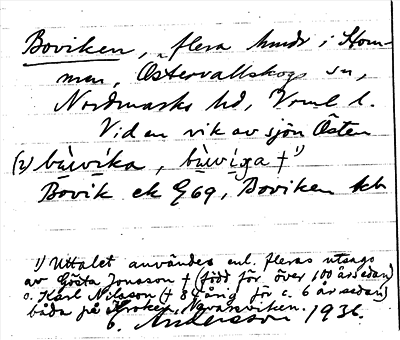 Boviken, flera hmdr i Hom-
men, Östervallskogs sn,
Nordmarks hd, Vrml l.
Vid en vik av sjön Östen
(2) bùwika, bùwiga † 1)
Bovik ek G69, Boviken kb
1) Uttalet användes enl. fleras utsago
av Gösta Jonsson † (född för över 100 år sedan)
o. Karl Nilsson († 84-årig för c. 6 år sedan)
båda på Kroken,
Andersson 1936.